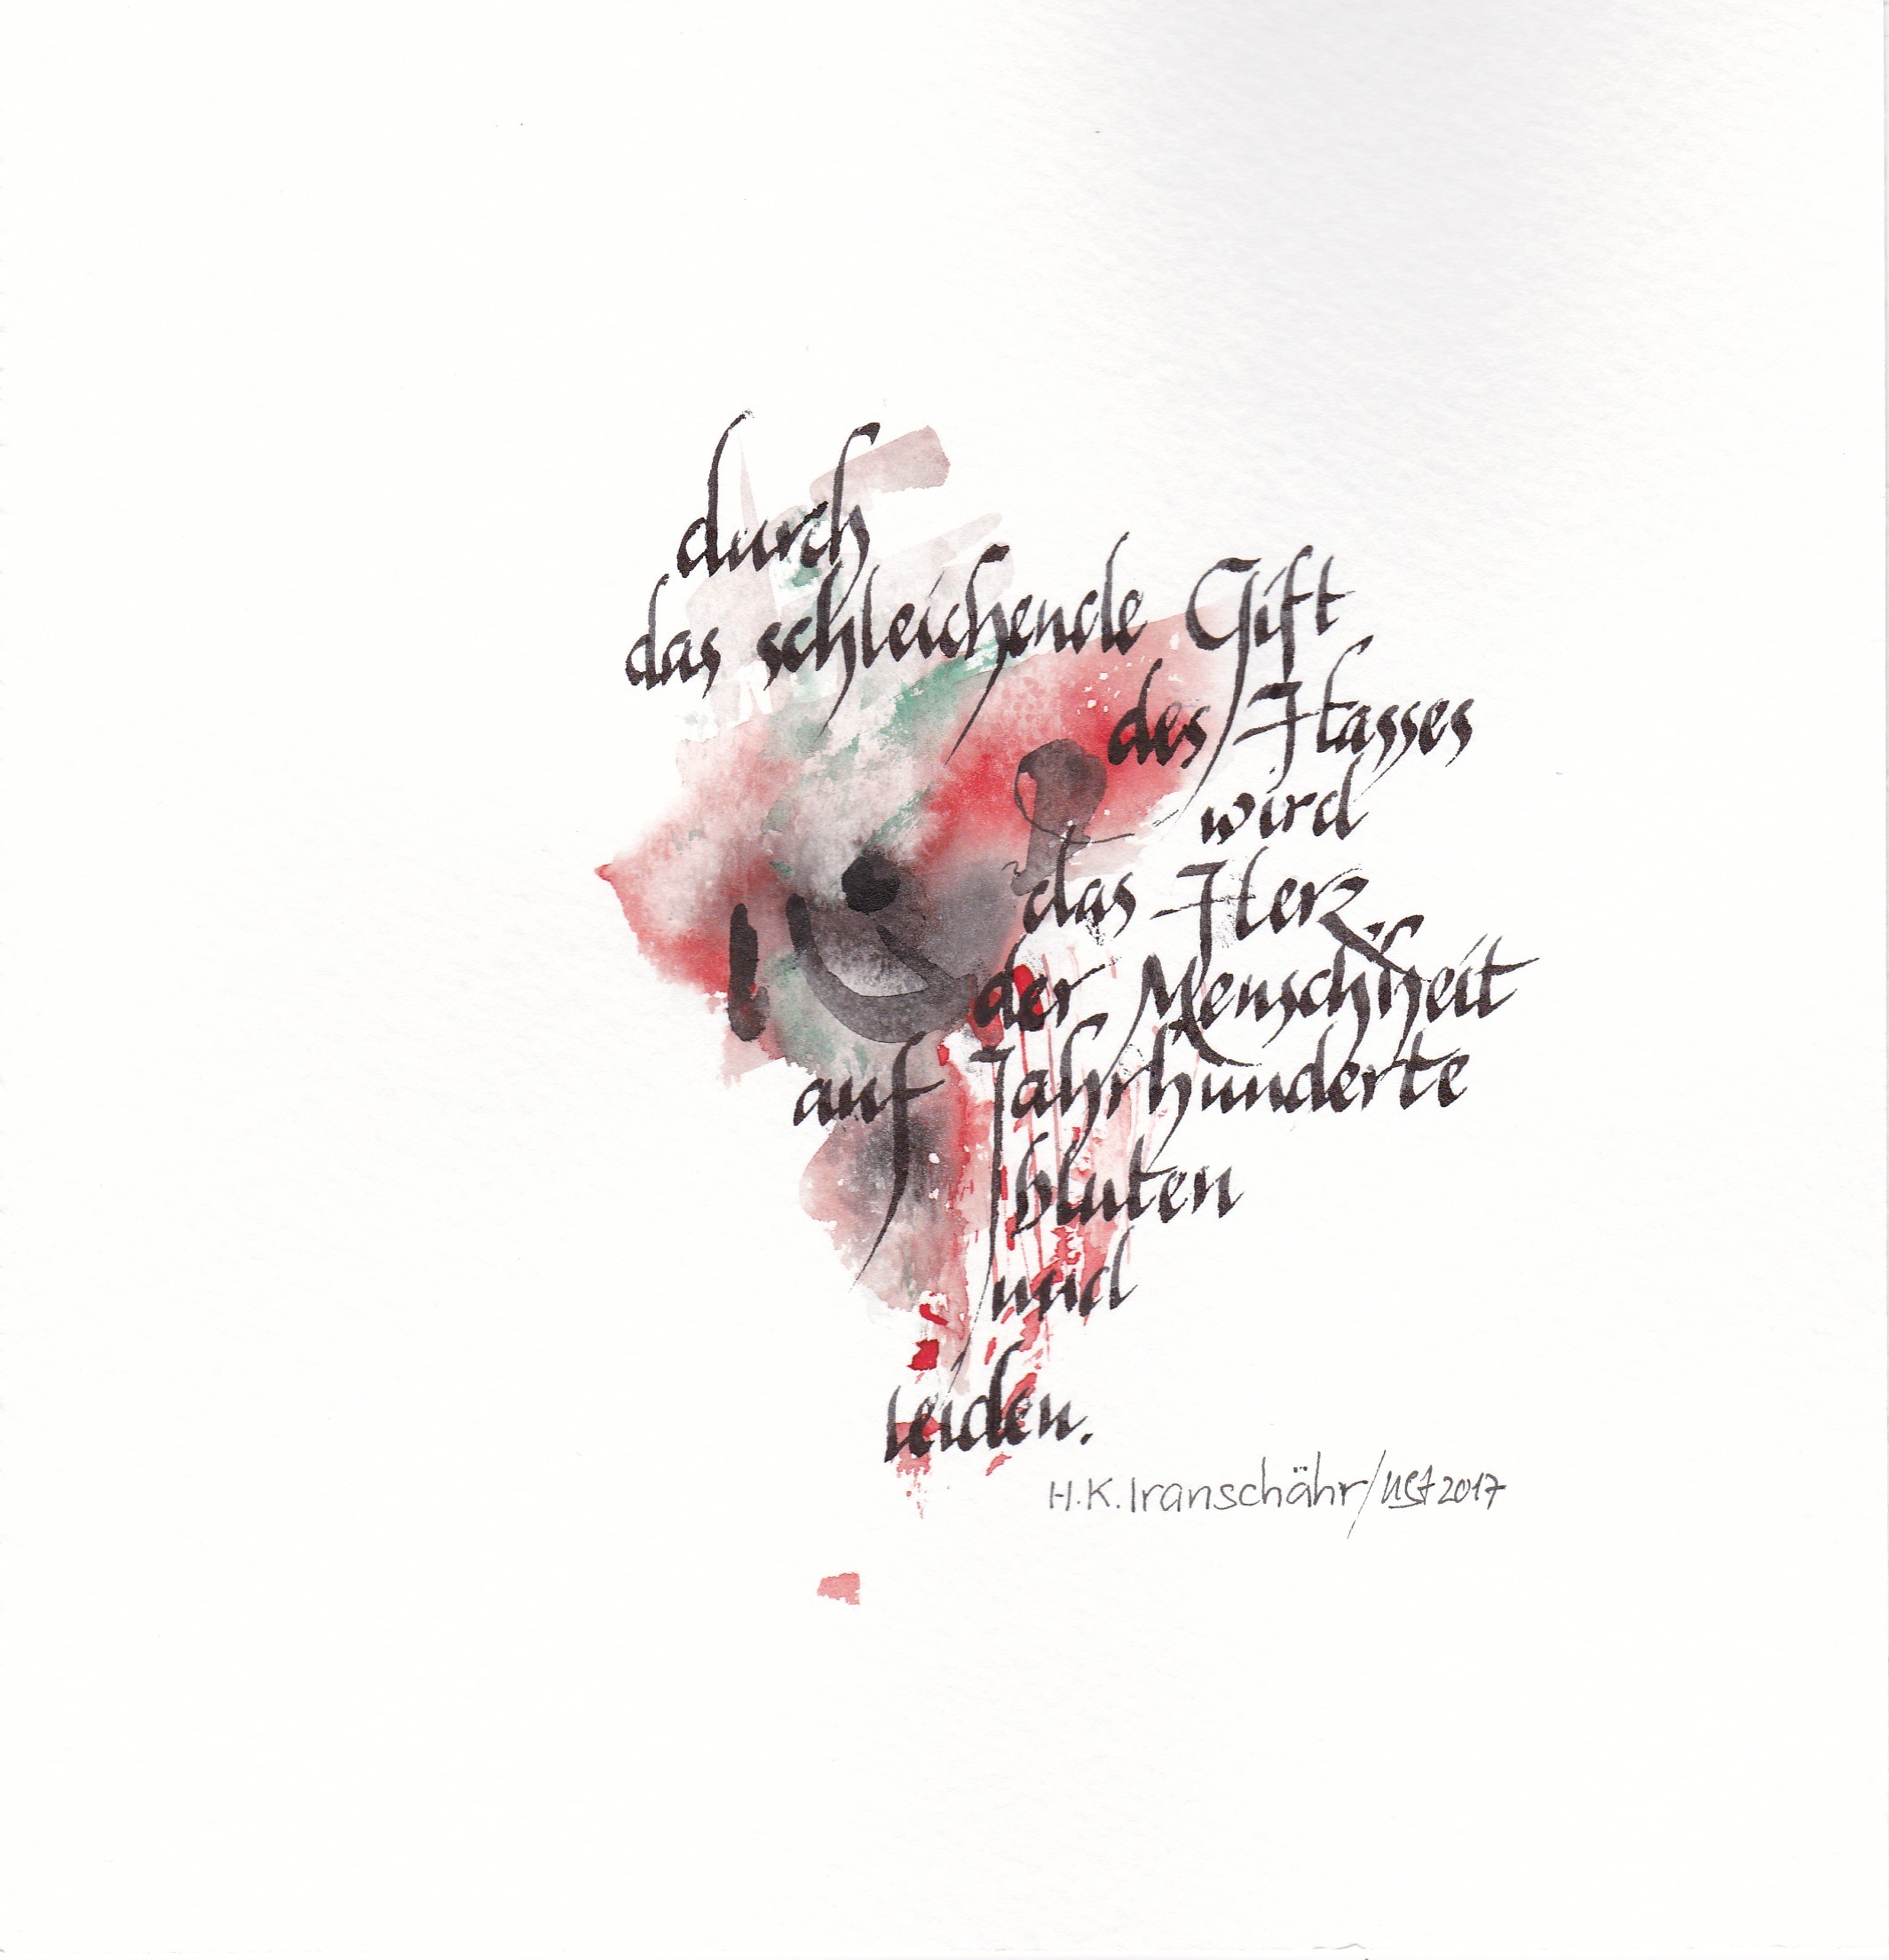 durch
das schleichende Gift
des Hasses
wird
das Herz
der Menschheit
auf Jahrhunderte
bluten
und
leiden.
H.K.Iranschähr/ 2017